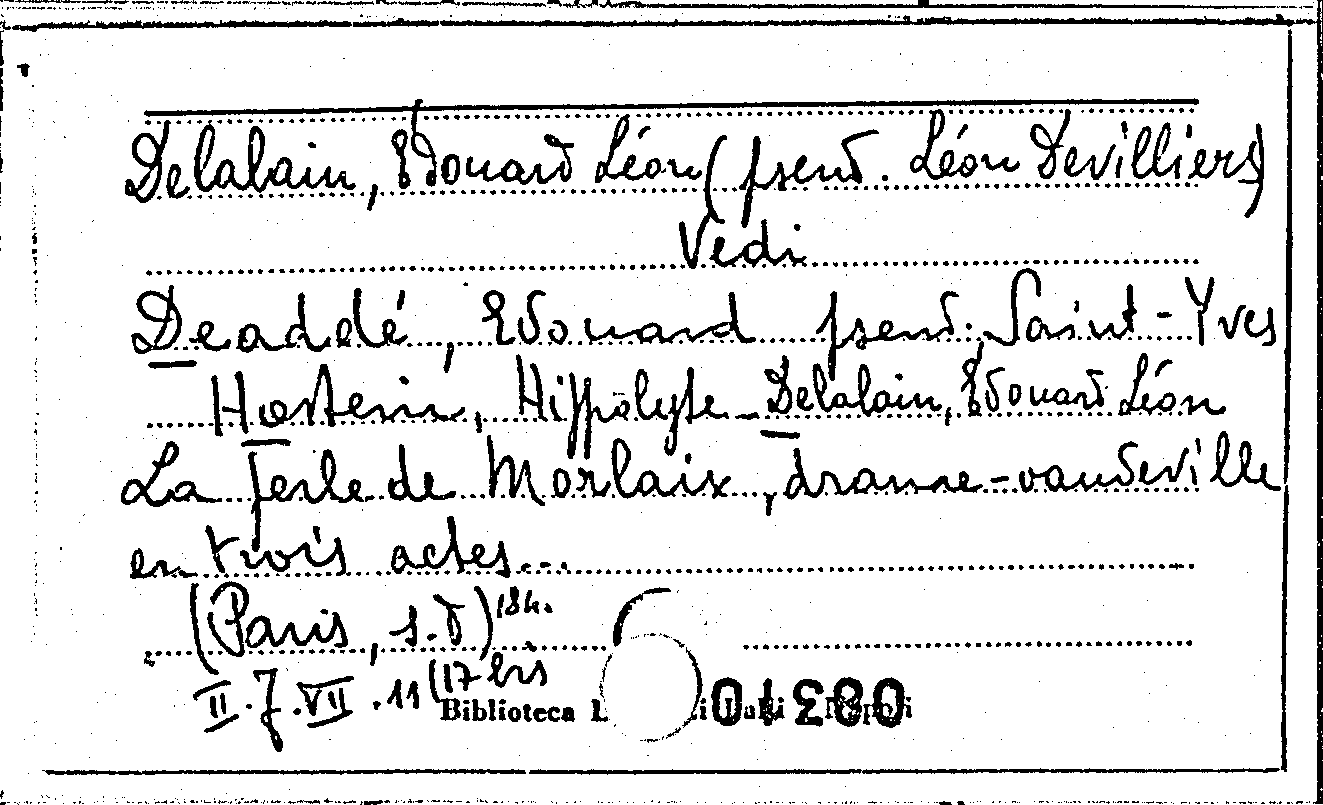 Delalain, Edouard Léon (pseud. Léon Devilliers)
Vedi
Deaddé, Edouard pseud. Saint-Yves
Hostein, Hippolyte - Delalain, Edouard Léon
La Perle de Morlaix, drame-vaudeville
en trois actes...
(Paris, s.d) 184.
II.J.VII.11 (17 bis
Biblioteca
00310